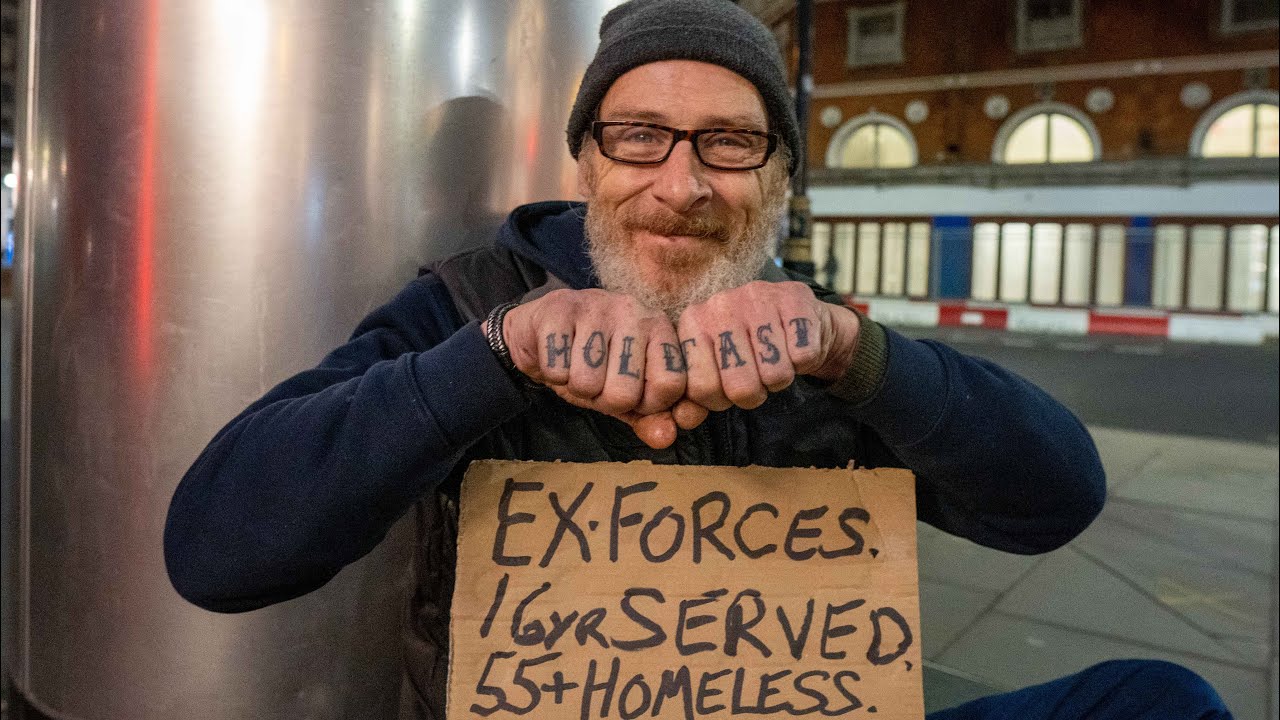 HOLDFAST
EX·FORCES.
16yr SERVED,
55+ HOMELESS.